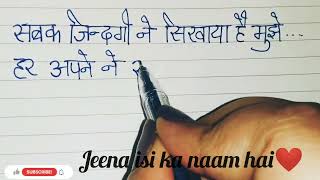 सबक जिन्दगी ने सिखाया है मुझे...
हर अपने ने
Jeena isi ka naam hai❤